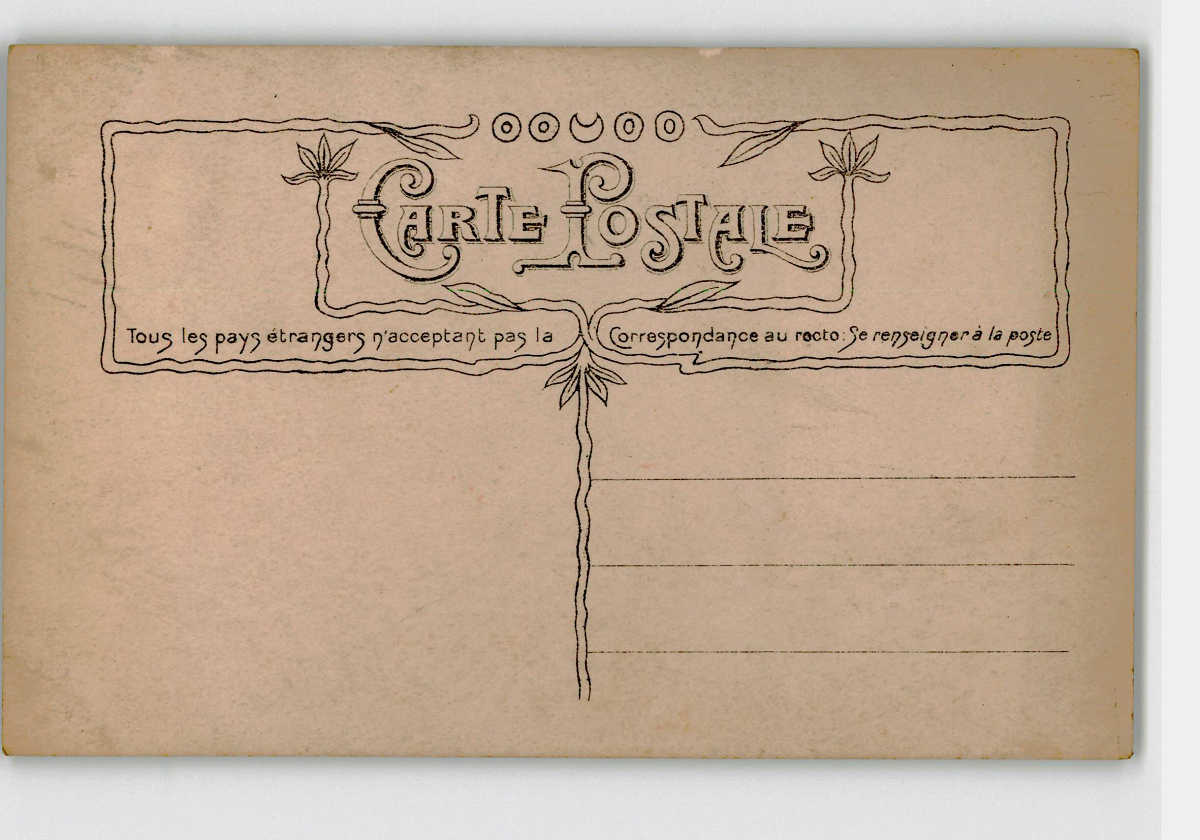 CARTE POSTALE
Tous les pays étrangers n'acceptant pas la Correspondance au recto: Se renseigner à la poste